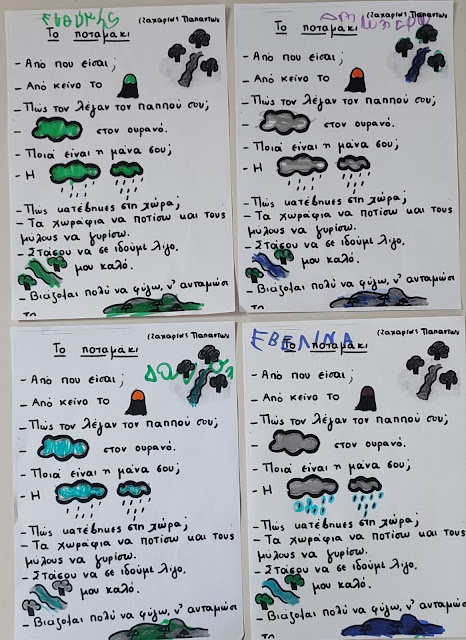 Το ποταμάκι
(Ζαχαρίας Παπαντων
- Από που είσαι;
- Από κείνο το
- Πώς τον λέγαν τον παππού σου;
- στον ουρανό.
- Ποιά είναι η μάνα σου;
- Η
- Πώς κατέβηκες στη χώρα;
- Τα χωράφια να ποτίσω και τους
μύλους να γυρίσω.
- Στάσου να σε ιδούμε λίγο,
μου καλό.
- Βιάζομαι πολύ να φύγω, ν' ανταμώσ
Το ποταμάκι
(Ζαχαρίας Παπαντων
- Από που είσαι;
- Από κείνο το
- Πώς τον λέγαν τον παππού σου;
- στον ουρανό.
- Ποιά είναι η μάνα σου;
- Η
- Πώς κατέβηκες στη χώρα;
- Τα χωράφια να ποτίσω και τους
μύλους να γυρίσω.
- Στάσου να σε ιδούμε λίγο,
μου καλό.
- Βιάζομαι πολύ να φύγω, ν' ανταμώσ
Το ποταμάκι
(Ζαχαρίας Παπαντων
- Από που είσαι;
- Από κείνο το
- Πώς τον λέγαν τον παππού σου;
- στον ουρανό.
- Ποιά είναι η μάνα σου;
- Η
- Πώς κατέβηκες στη χώρα;
- Τα χωράφια να ποτίσω και τους
μύλους να γυρίσω.
- Στάσου να σε ιδούμε λίγο,
μου καλό.
- Βιάζομαι πολύ να φύγω, ν' ανταμώσ
ΕΒΕΛΙΝΑ
Το ποταμάκι
(Ζαχαρίας Παπαντων
- Από που είσαι;
- Από κείνο το
- Πώς τον λέγαν τον παππού σου;
- στον ουρανό.
- Ποιά είναι η μάνα σου;
- Η
- Πώς κατέβηκες στη χώρα;
- Τα χωράφια να ποτίσω και τους
μύλους να γυρίσω.
- Στάσου να σε ιδούμε λίγο,
μου καλό.
- Βιάζομαι πολύ να φύγω, ν' ανταμώσ